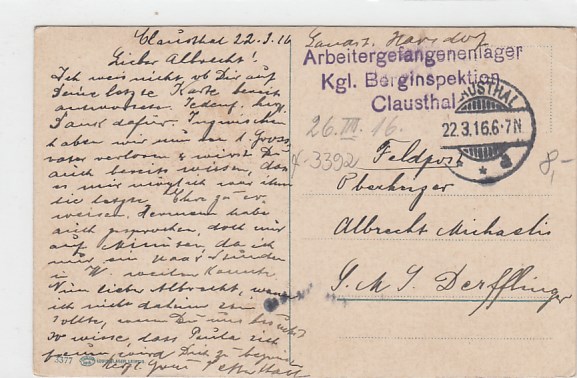 Clausthal 22.3.16
Lieber Albrecht!
Ich weis nicht, ob Dir auf
Deine letzte Karte bereits
antwortete. Jedenf. herzl.
Dank dafür. Inzwischen
haben wir nun den l. Gross
vater verloren & wirst Du
auch bereits wissen, dass
es mir möglich war ihm
die letzte Ehre zu er
weisen. Hermann habe
auch gesprochen, doch nur
auf Minuten, da ich
nur ein paar Stunden
in W. weilen konnte.
Nun lieber Albrecht, wenn
ich nicht daheim sein
sollte, wenn Du uns besuchst
so wisse, dass Paula sich
freuen wird Dich zu begrüssen
Herzl. Gruss
3377
Arbeitergefangenenlager
Kgl. Berginspektion
Clausthal
CLAUSTHAL
22.3.16.6-7N
* a
26.III.16.
x-3392
8,-
Feldpost
Oberheizer
Albrecht Michaelis
S.M.S. Derfflinger